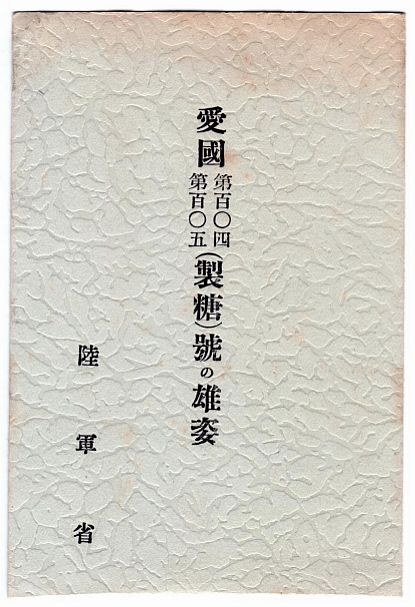 愛國第百〇四第百〇五(製糖)號の雄姿
陸軍省